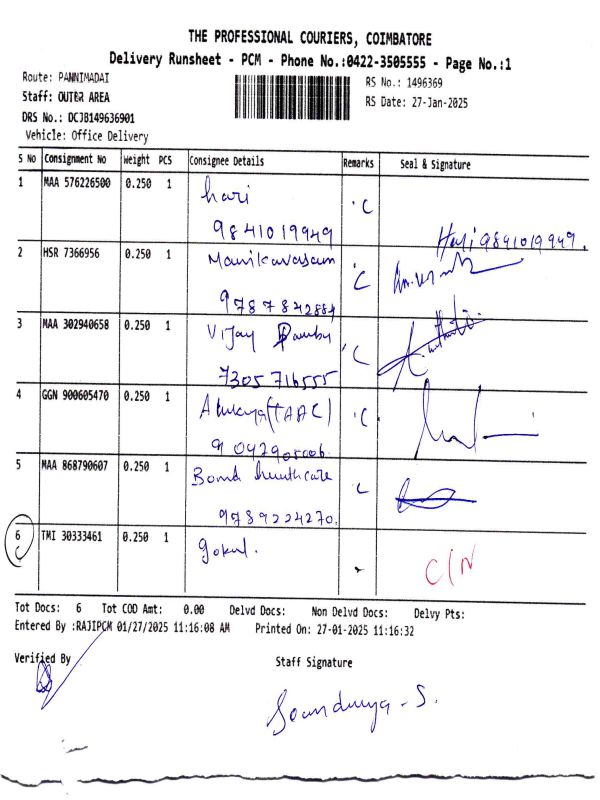 THE PROFESSIONAL COURIERS, COIMBATORE
Delivery Runsheet - PCM - Phone No.:0422-3505555 - Page No.:1
Route: PANNIMADAI
RS No.: 1496369
Staff: OUTER AREA
RS Date: 27-Jan-2025
DRS No.: DCJB149636901
Vehicle: Office Delivery
S No Consignment No Weight PCS Consignee Details Remarks Seal & Signature
1 MAA 576226500 0.250 1 hari C
9841019949 Hari 9841019949.
2 HSR 7366956 0.250 1 Manikavasam C
9787842884
3 MAA 302940658 0.250 1 Vijay C
7305716555
4 GGN 900605470 0.250 1 (TAAC) C
5 MAA 868790607 0.250 1 Bomd healthcare C
9789224270.
6 TMI 30333461 0.250 1 gokul. C/N
Tot Docs: 6 Tot COD Amt: 0.00 Delvd Docs: Non Delvd Docs: Delvy Pts:
Entered By :RAJIPCM 01/27/2025 11:16:08 AM Printed On: 27-01-2025 11:16:32
Verified By
Staff Signature
Soundurya - S.